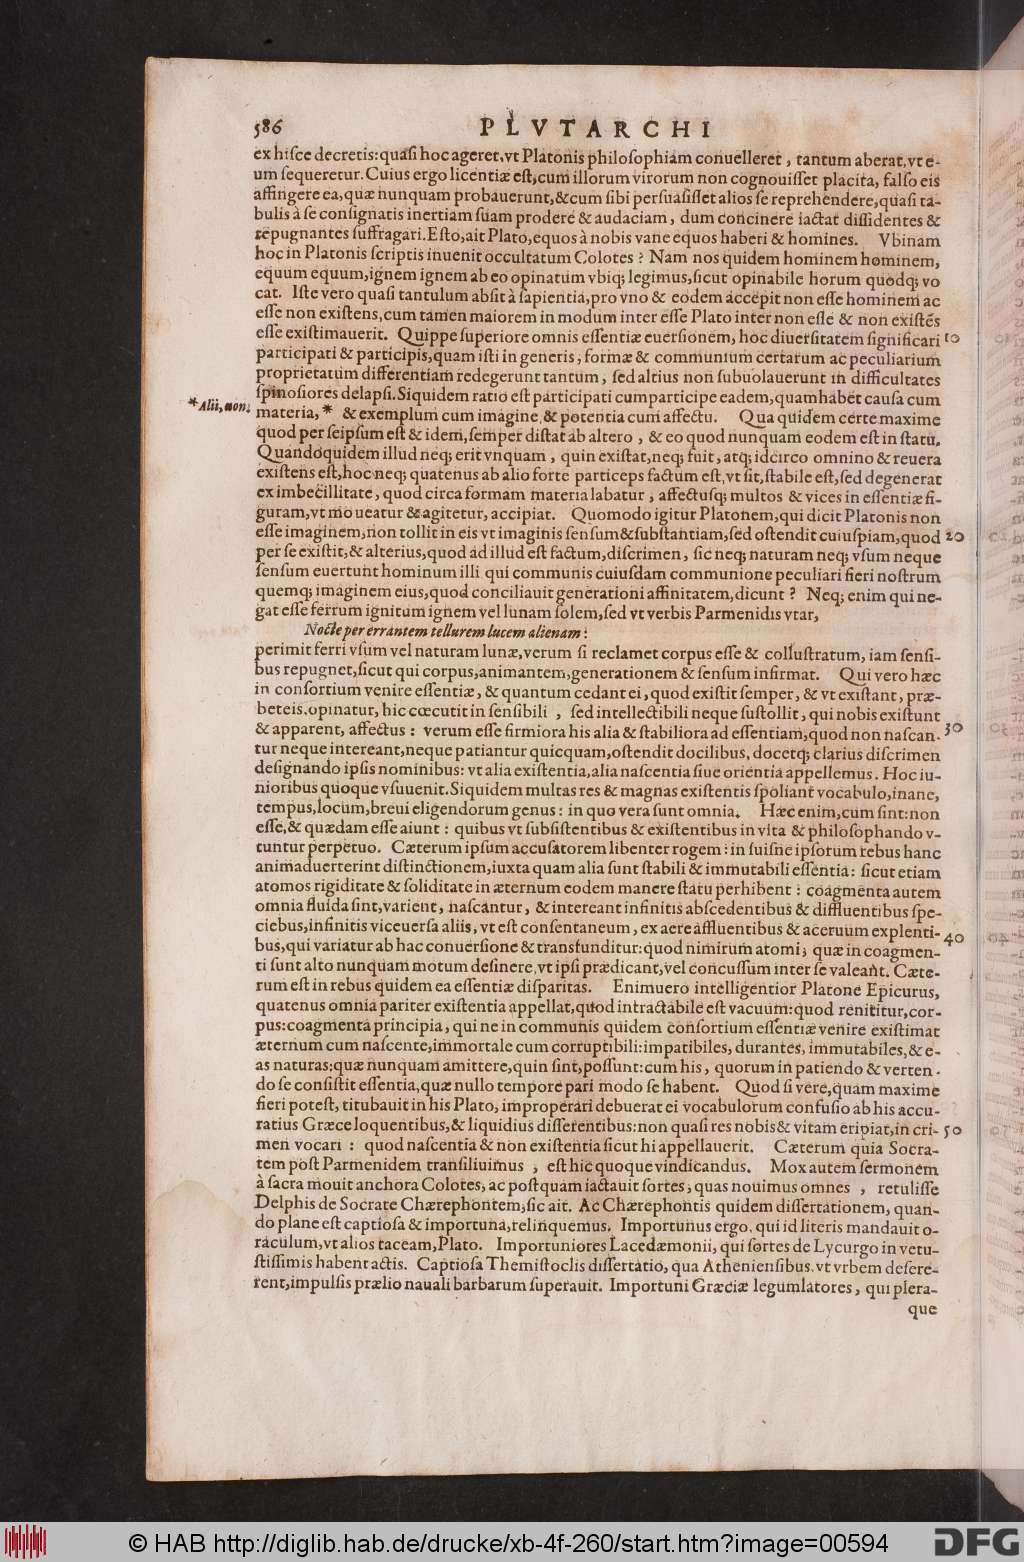 586
PLVTARCHI
ex hisce decretis: quasi hoc ageret, vt Platonis philosophiam conuelleret, tantum aberat, vt e-
um sequeretur. Cuius ergo licentiæ est, cum illorum virorum non cognouisset placita, falso eis
affingere ea, quæ nunquam probauerunt, & cum sibi persuasisset alios se reprehendere, quasi ta-
bulis à se consignatis inertiam suam prodere & audaciam, dum concinere iactat dissidentes &
repugnantes suffragari. Esto, ait Plato, equos à nobis vane equos haberi & homines. Vbinam
hoc in Platonis scriptis inuenit occultatum Colotes? Nam nos quidem hominem hominem,
equum equum, ignem ignem ab eo opinatum vbiq; legimus, sicut opinabile horum quodq; vo
cat. Iste vero quasi tantulum absit à sapientia, pro vno & eodem accepit non esse hominem ac
esse non existens, cum tamen maiorem in modum inter esse Plato inter non esse & non existẽs
esse existimauerit. Quippe superiore omnis essentiæ euersionem, hoc diuersitatem significari 10
participati & participis, quam isti in generis, formæ & communium certarum ac peculiarium
proprietatum differentiam redegerunt tantum, sed altius non subuolauerunt in difficultates
spinosiores delapsi. Siquidem ratio est participati cum participe eadem, quam habet causa cum
*Alii, non.
materia, * & exemplum cum imagine, & potentia cum affectu. Qua quidem certe maxime
quod per seipsum est & idem, semper distat ab altero, & eo quod nunquam eodem est in statu.
Quandoquidem illud neq; erit vnquam, quin existat, neq; fuit, atq; idcirco omnino & reuera
existens est, hoc neq; quatenus ab alio forte particeps factum est, vt sit, stabile est, sed degenerat
ex imbecillitate, quod circa formam materia labatur, affectusq; multos & vices in essentiæ fi-
guram, vt moueatur & agitetur, accipiat. Quomodo igitur Platonem, qui dicit Platonis non
esse imaginem, non tollit in eis vt imaginis sensum & substantiam, sed ostendit cuiuspiam, quod 20
per se existit, & alterius, quod ad illud est factum, discrimen, sic neq; naturam neq; vsum neque
sensum euertunt hominum illi qui communis cuiusdam communione peculiari fieri nostrum
quemq; imaginem eius, quod conciliauit generationi affinitatem, dicunt? Neq; enim qui ne-
gat esse ferrum ignitum ignem vel lunam solem, sed vt verbis Parmenidis vtar,
Nocte per errantem tellurem lucem alienam:
perimit ferri vsum vel naturam lunæ, verum si reclamet corpus esse & collustratum, iam sensi-
bus repugnet, sicut qui corpus, animantem, generationem & sensum infirmat. Qui vero hæc
in consortium venire essentiæ, & quantum cedant ei, quod existit semper, & vt existant, præ-
bet eis, opinatur, hic cœcutit in sensibili, sed intellectibili neque sustollit, qui nobis existunt
& apparent, affectus: verum esse firmiora his alia & stabiliora ad essentiam, quod non nascan- 30
tur neque intereant, neque patiantur quicquam, ostendit docilibus, docetq; clarius discrimen
designando ipsis nominibus: vt alia existentia, alia nascentia siue orientia appellemus. Hoc iu-
nioribus quoque vsuuenit. Siquidem multas res & magnas existentis spoliant vocabulo, inane,
tempus, locum, breui eligendorum genus: in quo vera sunt omnia. Hæc enim, cum sint: non
esse, & quædam esse aiunt: quibus vt subsistentibus & existentibus in vita & philosophando v-
tuntur perpetuo. Cæterum ipsum accusatorem libenter rogem: in suisne ipsorum rebus hanc
animaduerterint distinctionem, iuxta quam alia sunt stabili & immutabili essentia: sicut etiam
atomos rigiditate & soliditate in æternum eodem manere statu perhibent: coagmenta autem
omnia fluida sint, varient, nascantur, & intereant infinitis abscedentibus & diffluentibus spe-
ciebus, infinitis viceuersa aliis, vt est consentaneum, ex aere affluentibus & aceruum explenti- 40
bus, qui variatur ab hac conuersione & transfunditur: quod nimirum atomi, quæ in coagmen-
ti sunt alto nunquam motum desinere, vt ipsi prædicant, vel concussum inter se valeant. Cæte-
rum est in rebus quidem ea essentiæ disparitas. Enimuero intelligentior Platone Epicurus,
quatenus omnia pariter existentia appellat, quod intractabile est vacuum: quod renititur, cor-
pus: coagmenta principia, qui ne in communis quidem consortium essentiæ venire existimat
æternum cum nascente, immortale cum corruptibili: impatibiles, durantes, immutabiles, & e-
as naturas: quæ nunquam amittere, quin sint, possunt: cum his, quorum in patiendo & verten-
do se consistit essentia, quæ nullo tempore pari modo se habent. Quod si vere, quam maxime
fieri potest, titubauit in his Plato, improperari debuerat ei vocabulorum confusio ab his accu-
ratius Græce loquentibus, & liquidius disserentibus: non quasi res nobis & vitam eripiat, in cri- 50
men vocari: quod nascentia & non existentia sicut hi appellauerit. Cæterum quia Socra-
tem post Parmenidem transiliuimus, est hic quoque vindicandus. Mox autem sermonem
à sacra mouit anchora Colotes, ac postquam iactauit sortes, quas nouimus omnes, retulisse
Delphis de Socrate Chærephontem, sic ait. Ac Chærephontis quidem dissertationem, quan-
do plane est captiosa & importuna, relinquemus. Importunus ergo, qui id literis mandauit o-
raculum, vt alios taceam, Plato. Importuniores Lacedæmonii, qui sortes de Lycurgo in vetu-
stissimis habent actis. Captiosa Themistoclis dissertatio, qua Atheniensibus, vt vrbem desere-
rent, impulsis prælio nauali barbarum superauit. Importuni Græciæ legumlatores, qui plera-
que
© HAB http://diglib.hab.de/drucke/xb-4f-260/start.htm?image=00594
DFG